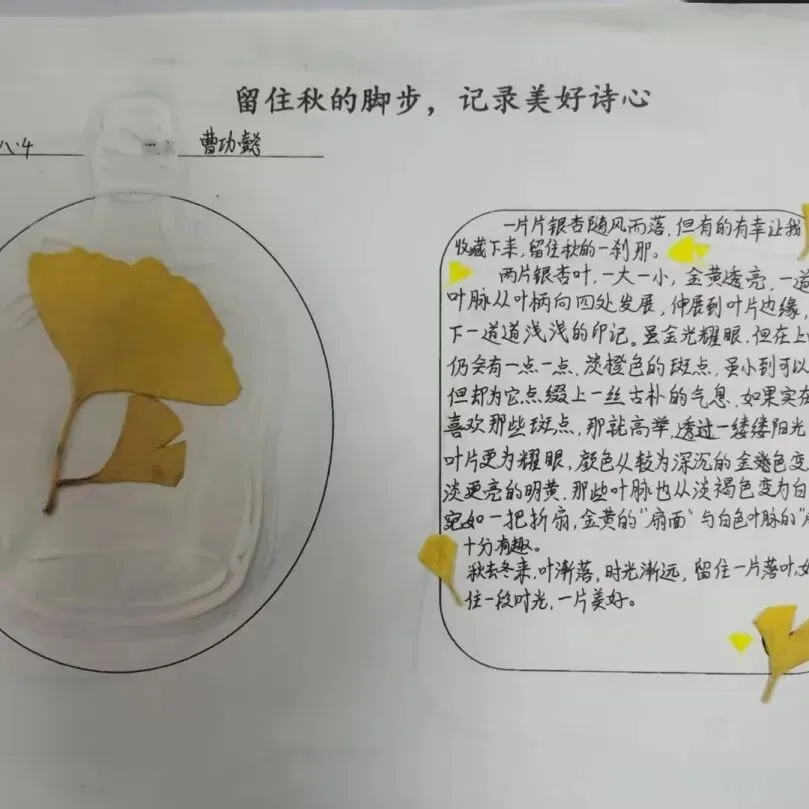 留住秋的脚步，记录美好诗心
八.4 曹功懿
一片片银杏随风而落，但有的有幸让我
收藏下来，留住秋的一刹那。
两片银杏叶，一大一小，金黄透亮，一道
叶脉从叶柄向四处发展，伸展到叶片边缘，
下一道道浅浅的印记。虽金光耀眼，但在上
仍会有一点一点、淡橙色的斑点，虽小到可以
但却为它点缀上一丝古朴的气息。如果实在
喜欢那些斑点，那就高举，透过一缕缕阳光
叶片更为耀眼，颜色从较为深沉的金色变
淡更亮的明黄，那些叶脉也从淡褐色变为白
宛如一把折扇，金黄的“扇面”与白色叶脉的“
十分有趣。
秋去冬来，叶渐落，时光渐远，留住一片落叶，如
住一段时光，一片美好。